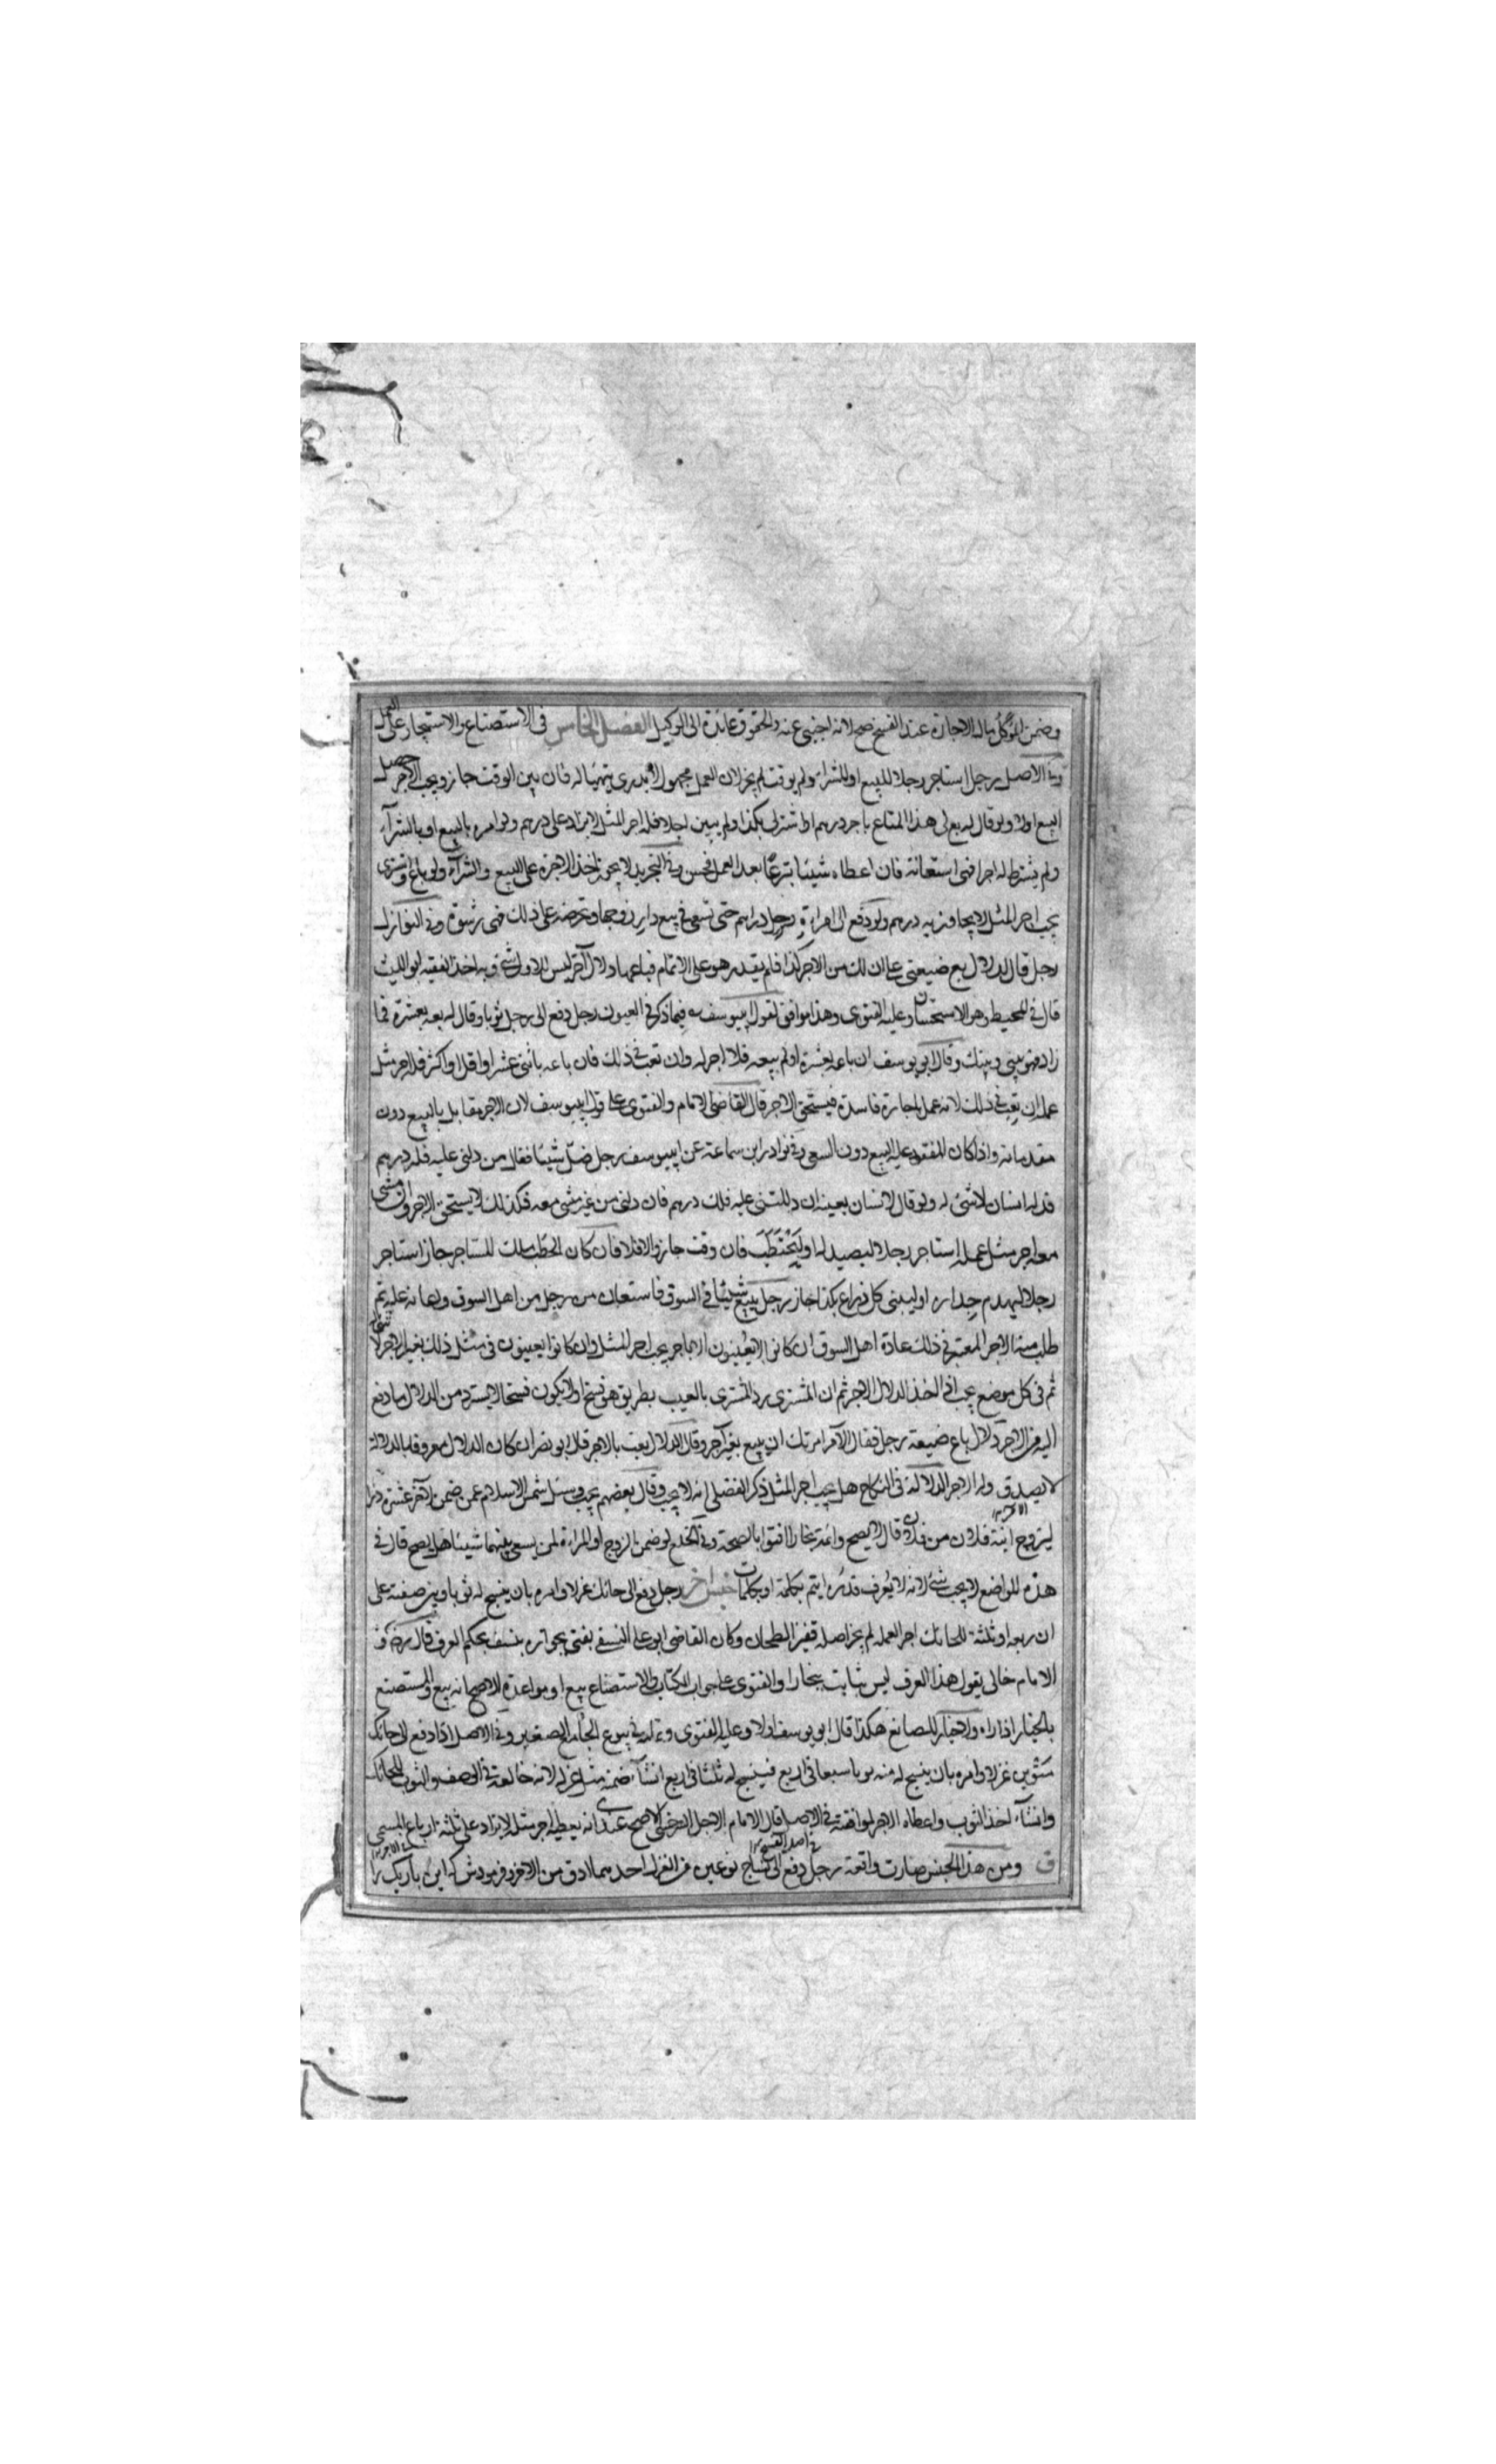 وضمن الموكل مال الاجازة عند الفسخ صح لانه اجنبى عنه والحقوق عائدة الى الوكيل الفصل الخامس فى الاستصناع والاستيجار على العمل
وفى الاصل رجل استاجر رجلا للبيع او للشراء ولم يوقت لم يجز لان العمل مجهول لا يدرى يتهيا له فان بين الوقت جاز ويجب الاجر حصل
البيع اولا ولو قال له بع لى هذا المتاع باجر درهم او اشترلى بكذا ولم يبين اجلا فله اجر المثل لا يزاد على درهم ولو امره بالبيع او بالشراء
ولم يشترط له اجرا فهى استعانة فان اعطاه شيئا تبرعا بعد العمل فحسن وفى التجريد لا يجوز اخذ الاجرة على البيع والشراء ولو باع واشترى
يجب اجر المثل لا يجاوز به درهم ولو دفع الى امراة رجل دراهم حتى تسعى فى بيع دار زوجها وتحرضه على ذلك فهى رشوة وفى النوازل
رجل قال لدلال بع ضيعتى على ان لك من الاجر كذا فلم يقدر هو على الاتمام فباعها دلال آخر ليس للاول شئ وبه اخذ الفقيه ابو الليث
قال فى المحيط وهو الاستحسان وعليه الفتوى وهذا موافق لقول ابيوسف فيما ذكر فى العيون رجل دفع الى رجل ثوبا وقال له بعه بعشرة فما
زاد فهو بينى وبينك وقال ابو يوسف ان باعه بعشرة او لم يبيعه فلا اجر له وان تعب فى ذلك فان باعه باثنى عشر او اقل او اكثر فله اجر مثل
عمله ان تعب فى ذلك لانه عمل باجارة فاسدة فيستحق الاجر قال القاضى الامام والفتوى على قول ابيوسف لان الاجر مقابل بالبيع دون
مقدماته واذا كان المعقود عليه البيع دون السعى وفى نوادر ابن سماعة عن ابيوسف رجل ضل شيئا فقال من دلنى عليه فله درهم
فدله انسان لا شئ له ولو قال لانسان بعينه ان دللتنى عليه فلك درهم فان دلنى من غير مشى معه فكذلك لا يستحق الاجر وان مشى
معه اجر مثل عمله استاجر رجلا ليصيد له او ليحتطب فان وقت جاز والا فلا فان كان الحطب ملك للمستاجر جاز استاجر
رجلا ليهدم جداره او ليبنى كل ذراع بكذا جاز رجل يبيع شيئا فى السوق فاستعان من رجل من اهل السوق واعانه عليه ثم
طلب منه الاجر المعتبر فى ذلك عادة اهل السوق ان كانوا لا يعينون الا باجر يجب اجر المثل وان كانوا يعينون فى مثل ذلك بغير اجر لا شئ له
ثم فى كل موضع يجب اذا اخذ الدلال الاجر ثم ان المشترى رد المشترى بالعيب بطريق هو فسخ او لا يكون فسخا لا يسترد من الدلال ما دفع
اليه من الاجر دلال باع ضيعة رجل فقال الآمر امرتك ان يبيع بغير آجر وقال الدلال بعت بالاجر قال ابو نصر ان كان الدلال معروفا بالدلالة
لا يصدق ولو اراد اجر الدلالة فى النكاح هل يجب اجر المثل ذكر الفضلى انه لا يجب وقال بعضهم يجب وسئل شمس الاسلام عمن ضمن لآخر عشرة
ليزوج ابنة فلان من فلان قال لا يصح وائمة بخارا افتوا بالصحة وفى الخلع لو ضمن الزوج او المراة لمن يسعى بينهما شيئا هل يصح قال فى
هذه المواضع لا يجب شئ لانه لا يعرف قدره ايتم بكلمة او بكلمات جنس اخر رجل دفع الى حائك غزلا وامره بان ينسج له ثوبا وبين صفته على
ان ربعه او ثلثه للحائك اجر العمله لم يجز اصله قفيز الطحان وكان القاضى ابو على النسفى يفتى بجوازه بنسف بحكم العرف قال
الامام خالى يقول هذا العرف ليس بثابت ببخارا والفتوى على جواب الكتاب والاستصناع بيع او مواعدة الاصح انه بيع والمستصنع
بالخيار اذا راه ولا خيار للصانع هكذا قال ابو يوسف اولا وعليه الفتوى وفى بيوع الجامع الصغير وفى الاصل اذا دفع الى حائك
غزلا وامره بان ينسج له منه ثوبا سبعا فى اربع فينسج له ثلثا فى اربع ان شاء ضمنه مثل غزله لانه خالفه فى الوصف والثوب للحائك
وان شاء اخذ الثوب واعطاه الاجر لموافقته فى الاصل قال الامام الاجل السرخسى الاصح عندى انه يعطيه اجر مثله لا يزاد على ثلثة ارباع المسمى
ومن هذا الجنس صارت واقعة رجل دفع الى نساج نوعين من الغزل احدهما ادق من الاخر وفرمودش كه اين باريك را